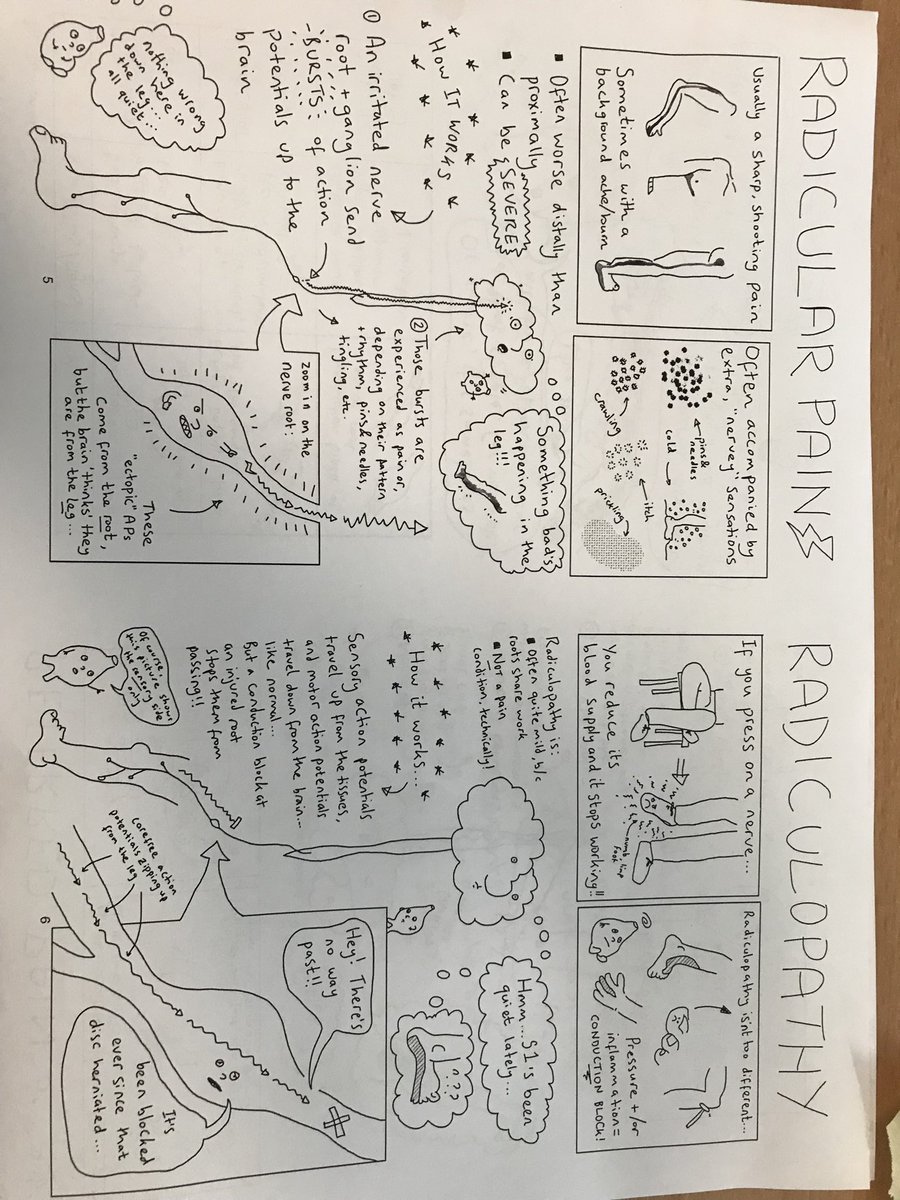 RADICULAR PAIN
Usually a sharp, shooting pain
Sometimes with a
background ache/burn
Often accompanied by
extra, "nervey" sensations
pins &
needles
cold
crawling
itch
prickling
Often worse distally than
proximally
Can be SEVERE
How IT WORKS
① An irritated nerve
root + ganglion send
-BURSTS- of action
potentials up to the
brain
nothing wrong
down here in
the leg...
all quiet...
② Those bursts are
experienced as pain or,
depending on their pattern
+ rhythm, pins & needles,
tingling, etc.
Something bad's
happening in the
leg!!!
Zoom in on the
nerve root:
These
"ectopic" APs
Come from the root,
but the brain 'thinks' they
are from the leg...
5
RADICULOPATHY
If you press on a nerve...
numb, limp
foot
You reduce its
blood supply and it stops working!!
Radiculopathy isn't too different...
Pressure +/or
inflammation =
CONDUCTION BLOCK!
Radiculopathy is:
Often quite mild, b/c
roots share work
NOT a pain
condition, technically!
How it works...
Sensory action potentials
travel up from the tissues,
and motor action potentials
travel down from the brain...
like normal...
But a conduction block at
an injured root
stops them from
passing!!
Of course,
this picture shows
the sensory side
only
Hmm... S1's been
quiet lately...
n??
Hey! There's
no way
past!!
carefree action
potentials zipping up
from the leg
It's
been blocked
ever since that
disc herniated...
6